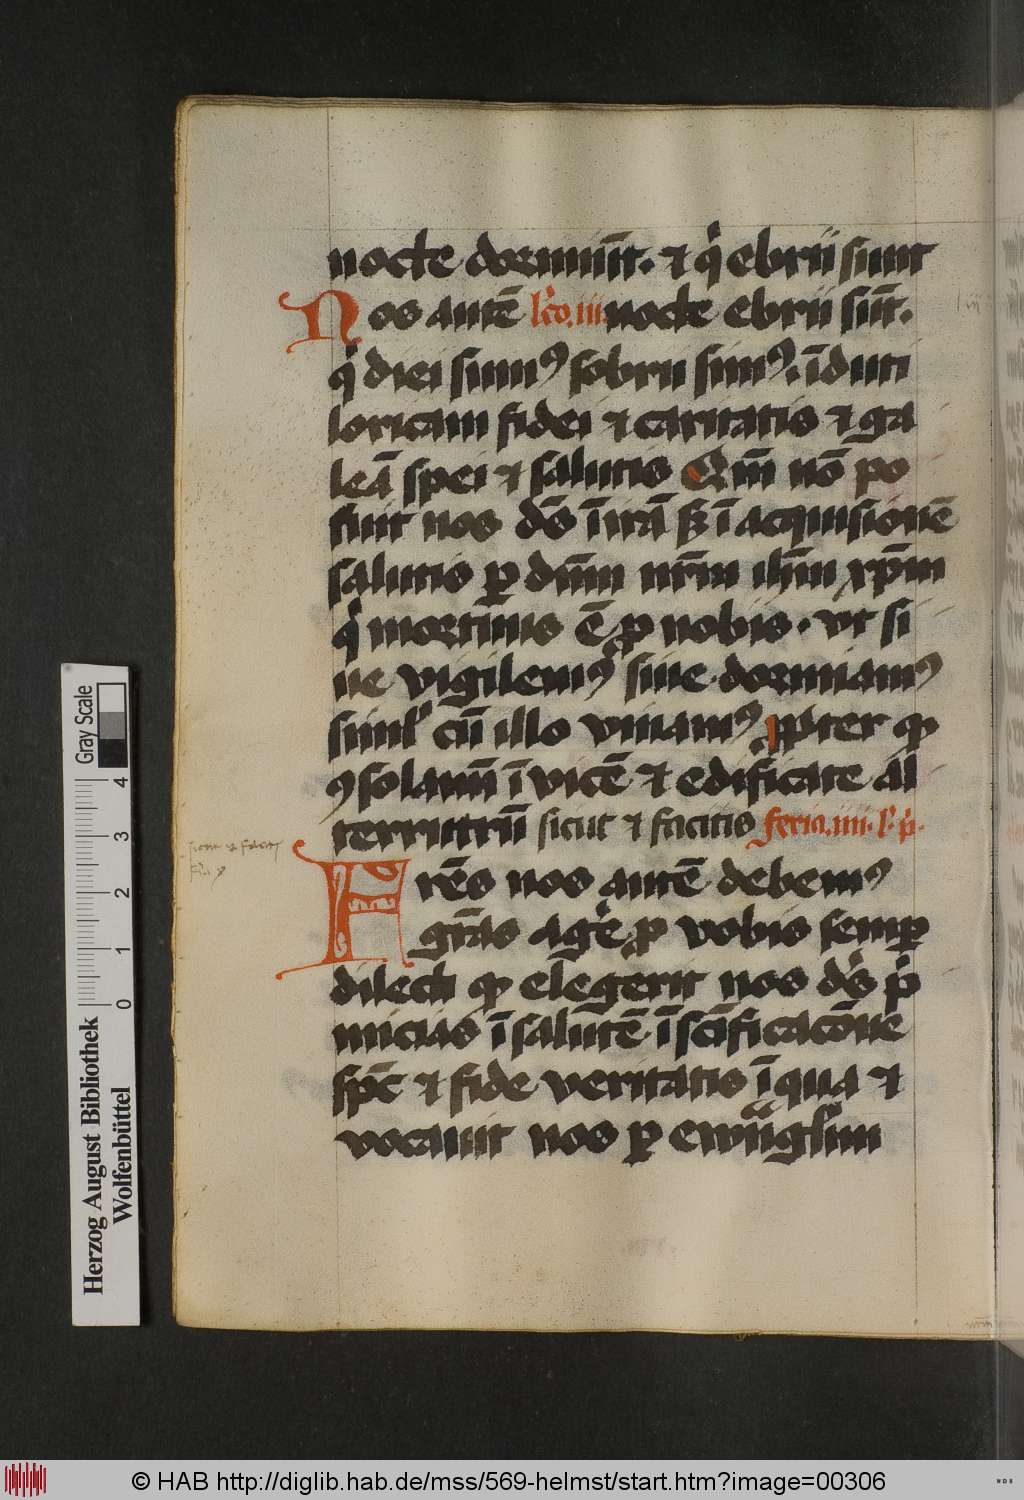 nocte dormiūt. ⁊ qͥ ebrii sunt
Nos autē lco. iii. nocte ebrii sūt.
qͥ diei simꝰ sobrii simꝰ. īduti
loricam fidei ⁊ caritatis ⁊ ga
leā spei ⁊ salutis Qm̄ nō po
suit nos ds̄ ī irā sꝫ ī acquisicionē
salutis ꝑ dnm̄ nr̄m ihm̄ xp̄m
qͥ mortuus ē ꝓ nobis. vt si
ue vigilemꝰ siue dormiamꝰ
siml' cū illo viuamꝰ ꝓpter qͦ
ꝯsolamī ī vicē ⁊ edificate al
terrutrū sicut ⁊ facitis feria. iiii. l'. pͥ.
Frēs nos autē debemꝰ
grās agͤe ꝓ vobis semꝑ
dilecti qͦ elegerit nos ds̄ pͥ
micias ī salutē ī sc̄ificacōne
spc̄ ⁊ fide veritatis ī qua ⁊
vocauit nos ꝑ ewāgliūm
sicut ⁊ facitis
Gray Scale
4
3
2
1
0
Herzog August Bibliothek
Wolfenbüttel
© HAB http://diglib.hab.de/mss/569-helmst/start.htm?image=00306